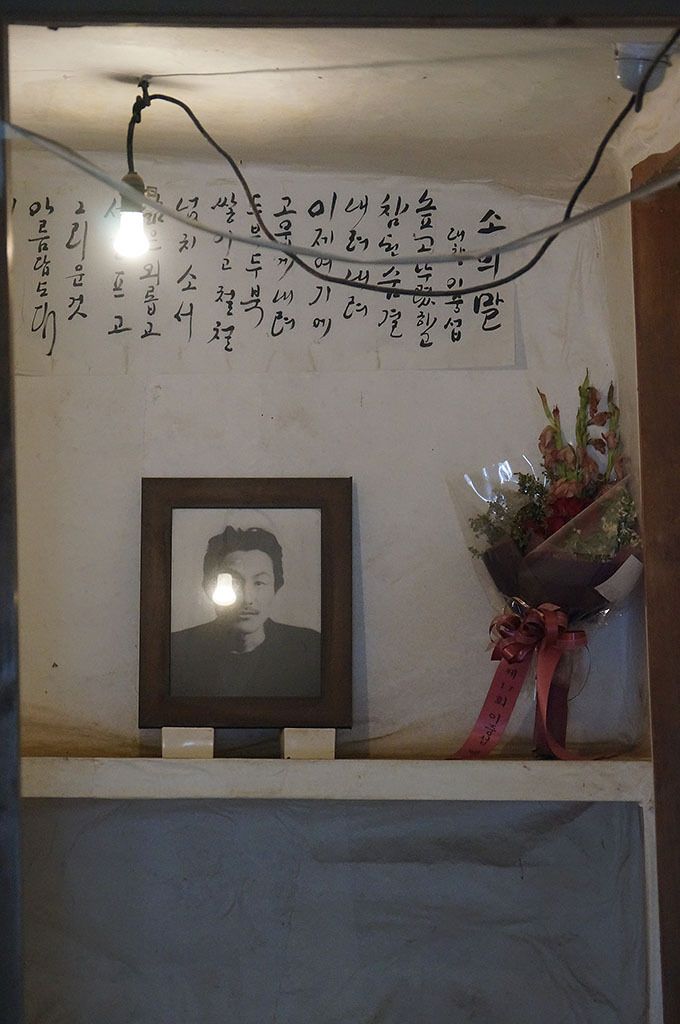 소의말
대향 이중섭
높고 뚜렷하고
참된숨결
내려 내려
이제여기에
고웁게 내려
두북두북
쌓이고 철철
넘치소서
삶은외롭고
프고
그리운것
아름답도다
제17회 이중섭